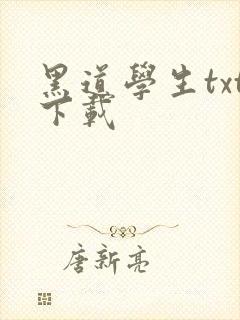 黑道學生txt
下載
唐新亮